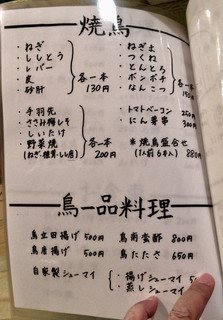 焼鳥
・ねぎ
・ししとう
・レバー
・皮
・砂肝
各一本
130円
・ねぎま
・つくね
・とんとろ
・ボンボチ
・なんこつ
各一本
150円
・手羽先
・ささみ梅しそ
・しいたけ
・野菜焼
(ねぎ、椎茸、しし唐)
各一本
200円
・トマトベーコン 250円
・にん著串 300円
※焼鳥盛合せ
(1人前6本入) 880円
鳥一品料理
鳥立田揚げ 500円
鳥南蛮酢 800円
鳥唐揚げ 500円
鳥たたき 650円
自家製シューマイ
・揚げシューマイ
・蒸しシューマイ